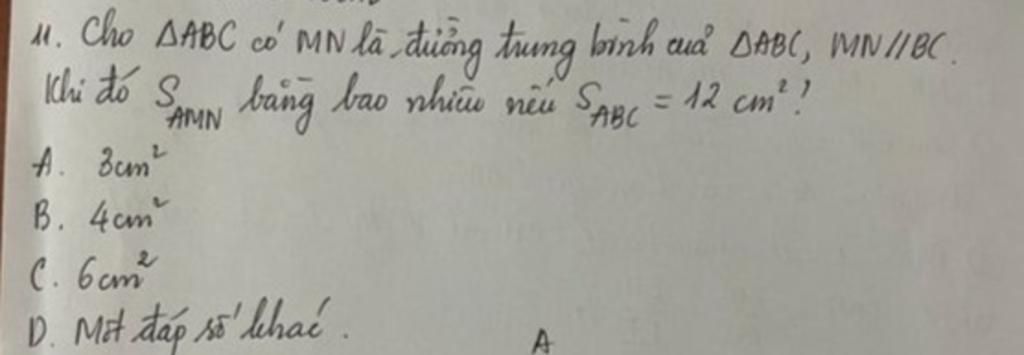 11. Cho ΔABC có MN là đường trung bình cuả ΔABC, MN//BC.
Khi đó S_AMN bằng bao nhiêu nếu S_ABC = 12 cm²?
A. 3cm²
B. 4cm²
C. 6cm²
D. Một đáp số khác.
A